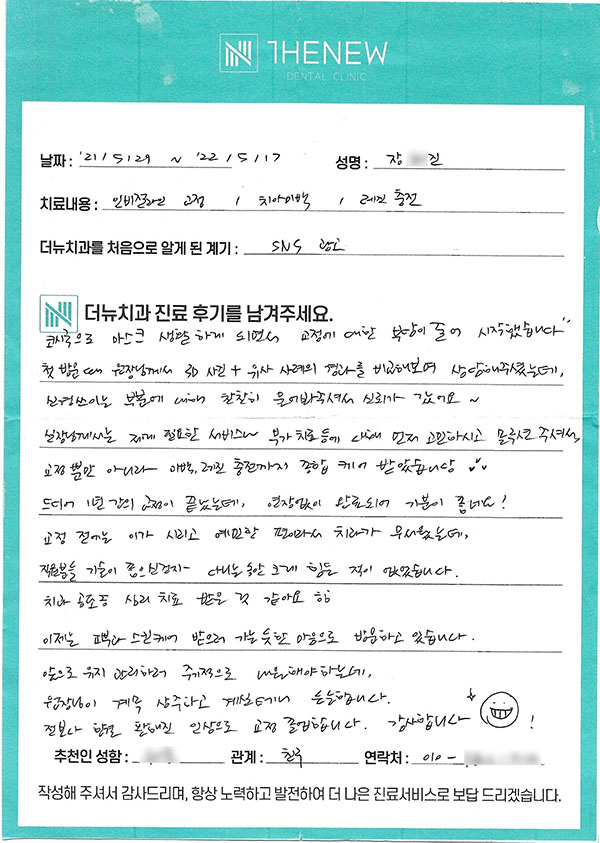 THENEW
DENTAL CLINIC
날짜 : '21/5/29 ~ '22/5/17 성명 : 장 진
치료내용 : 인비절라인 교정 / 치아미백 / 레진 충전
더뉴치과를 처음으로 알게 된 계기 : SNS 광고
더뉴치과 진료 후기를 남겨주세요.
코시국으로 마스크 생활하게 되면서 교정에 대한 부담이 줄어 시작했습니다
첫 방문 때 원장님께서 3D 사진 + 유사 사례의 결과를 비교해보며 상담해주셨는데,
신경쓰이는 부분에 대해 찬찬히 물어봐주셔서 신뢰가 갔어요~
실장님께서는 제게 필요한 서비스나 부가 치료 등에 대해 먼저 고민하시고 말씀해 주셔서,
교정 뿐만 아니라 미백, 레진 충전까지 종합 케어 받았습니당
드디어 1년 간의 교정이 끝났는데, 연장없이 완료되어 기분이 좋네요!
교정 전에는 이가 시리고 예민한 편이라서 치과가 무서웠는데,
직원분들 기술이 좋으신건지- 다니는 동안 크게 힘든 적이 없었습니다.
치과 공포증 심리 치료 받은 것 같아요 핫
이제는 피부과 스킨케어 받으러 가는 듯한 마음으로 방문하고 있습니다.
앞으로 유지 관리하러 주기적으로 내원해야 하는데,
원장님이 계속 상주하고 계실테니 든든합니다.
전보다 한결 환해진 인상으로 교정 졸업합니다. 감사합니다 !
추천인 성함 : 관계 : 친구 연락처 : 010 -
작성해 주셔서 감사드리며, 항상 노력하고 발전하여 더 나은 진료서비스로 보답 드리겠습니다.